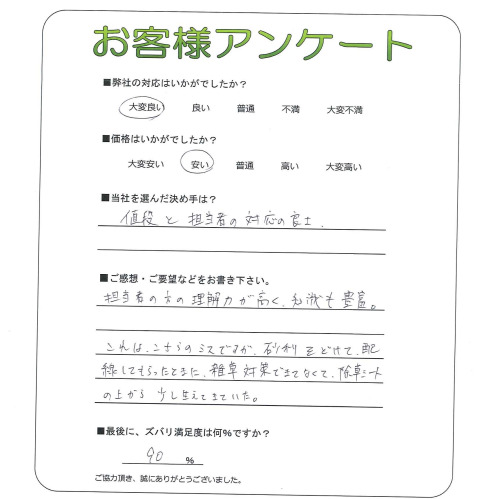 お客様アンケート
■弊社の対応はいかがでしたか？
大変良い 良い 普通 不満 大変不満
■価格はいかがでしたか？
大変安い 安い 普通 高い 大変高い
■当社を選んだ決め手は？
値段と担当者の対応の良さ.
■ご感想・ご要望などをお書き下さい。
担当者の方の理解力が高く、知識も豊富。
これは、こちらのミスですが、砂利をどけて、配
線してもらったときに、雑草対策できてなくて、除草シート
の上から少し生えてきていた。
■最後に、ズバリ満足度は何%ですか？
90 %
ご協力頂き、誠にありがとうございました。